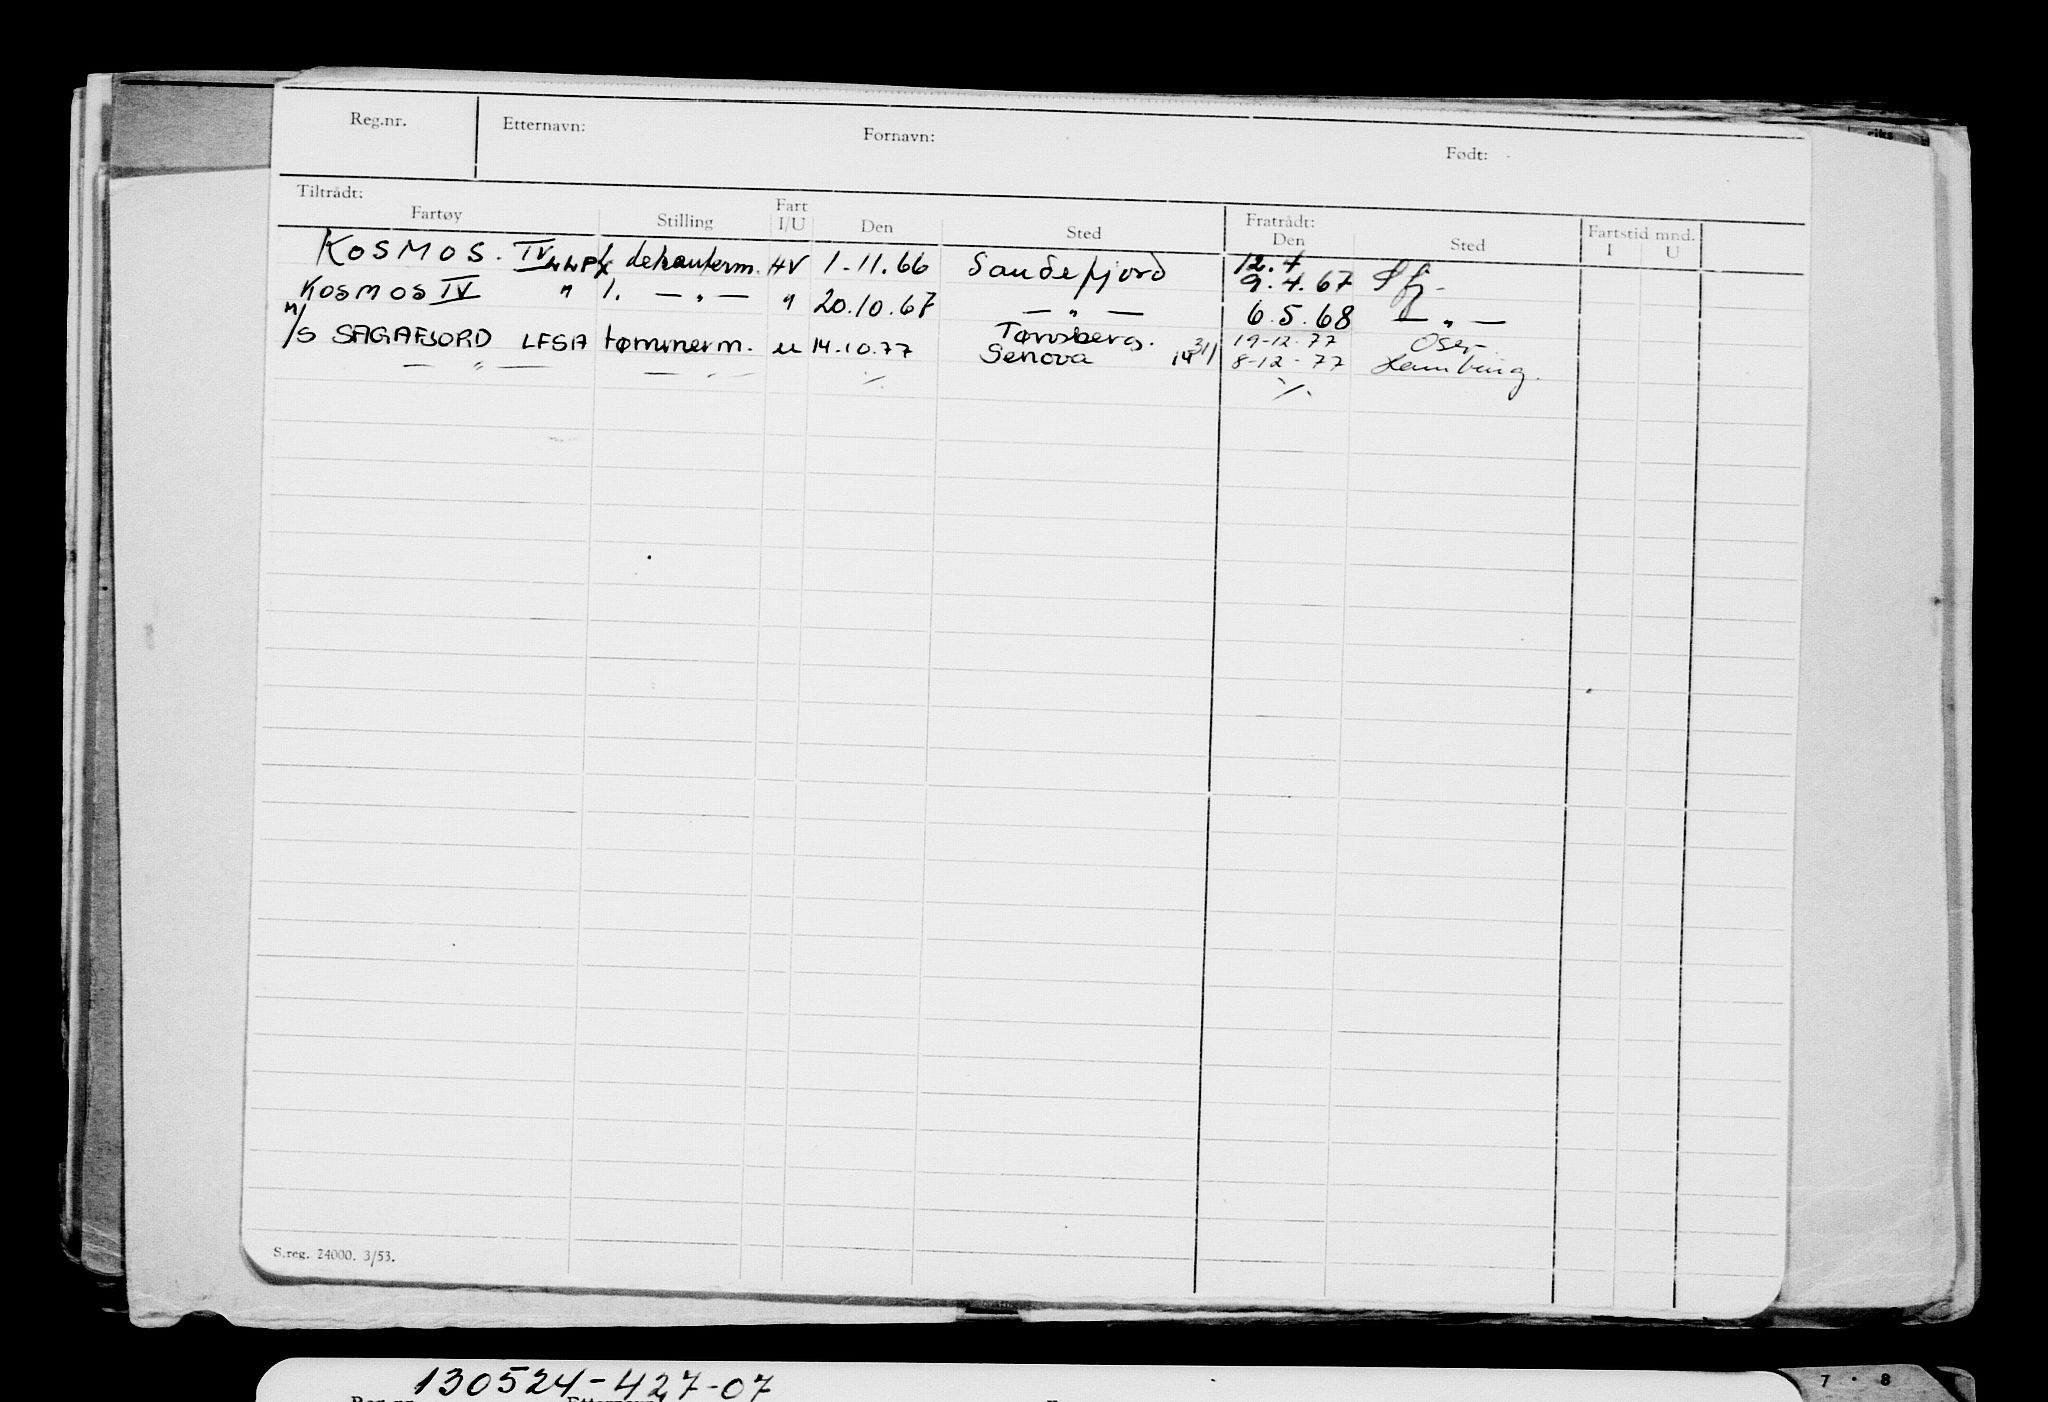 Reg.nr. Etternavn: Fornavn: Født:
Tiltrådt: Fratrådt:
Fartøy Stilling Fart I/U Den Sted Den Sted Fartstid mnd. I U
KOSMOS. IV LLPX 1. dekauterm. HV 1.11.66 Sandefjord 12.4 9.4.67 Sfj-
KOSMOS IV " 1. — " — " 20.10.67 — " — 6.5.68 — " —
M/S SAGAFJORD LFSA tømmerm. u 14.10.77 Tønsberg. 31/ 19-12-77
— " — — " — ./. Genova 14 8-12-77 Hamburg.
./.
S.reg. 24000. 3/53.
130524-427-07
Reg.nr. Etternavn
7 · 8